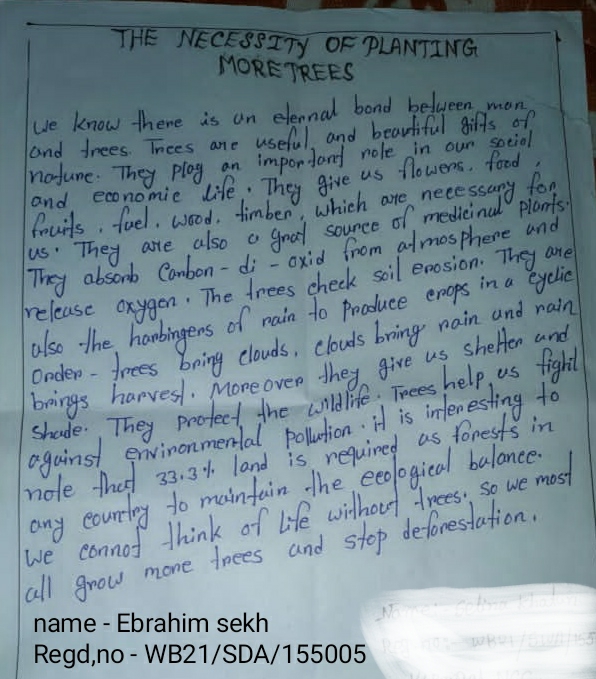 THE NECESSITY OF PLANTING
MORE TREES
We know there is an eternal bond between man
and trees. Trees are useful and beautiful gifts of
nature. They play an important role in our social
and economic life. They give us flowers, food,
fruits, fuel, wood, timber, which are necessary for
us. They are also a great source of medicinal plants.
They absorb Carbon-di-oxid from atmosphere and
release oxygen. The trees check soil erosion. They are
also the harbingers of rain to produce crops in a cyclic
order - trees bring clouds, clouds bring rain and rain
brings harvest. Moreover they give us shelter and
shade. They protect the wildlife. Trees help us fight
against environmental pollution. it is interesting to
note that 33.3% land is required as forests in
any country to maintain the ecological balance.
We cannot think of life without trees. so we most
all grow more trees and stop deforestation.
name - Ebrahim sekh
Regd,no - WB21/SDA/155005